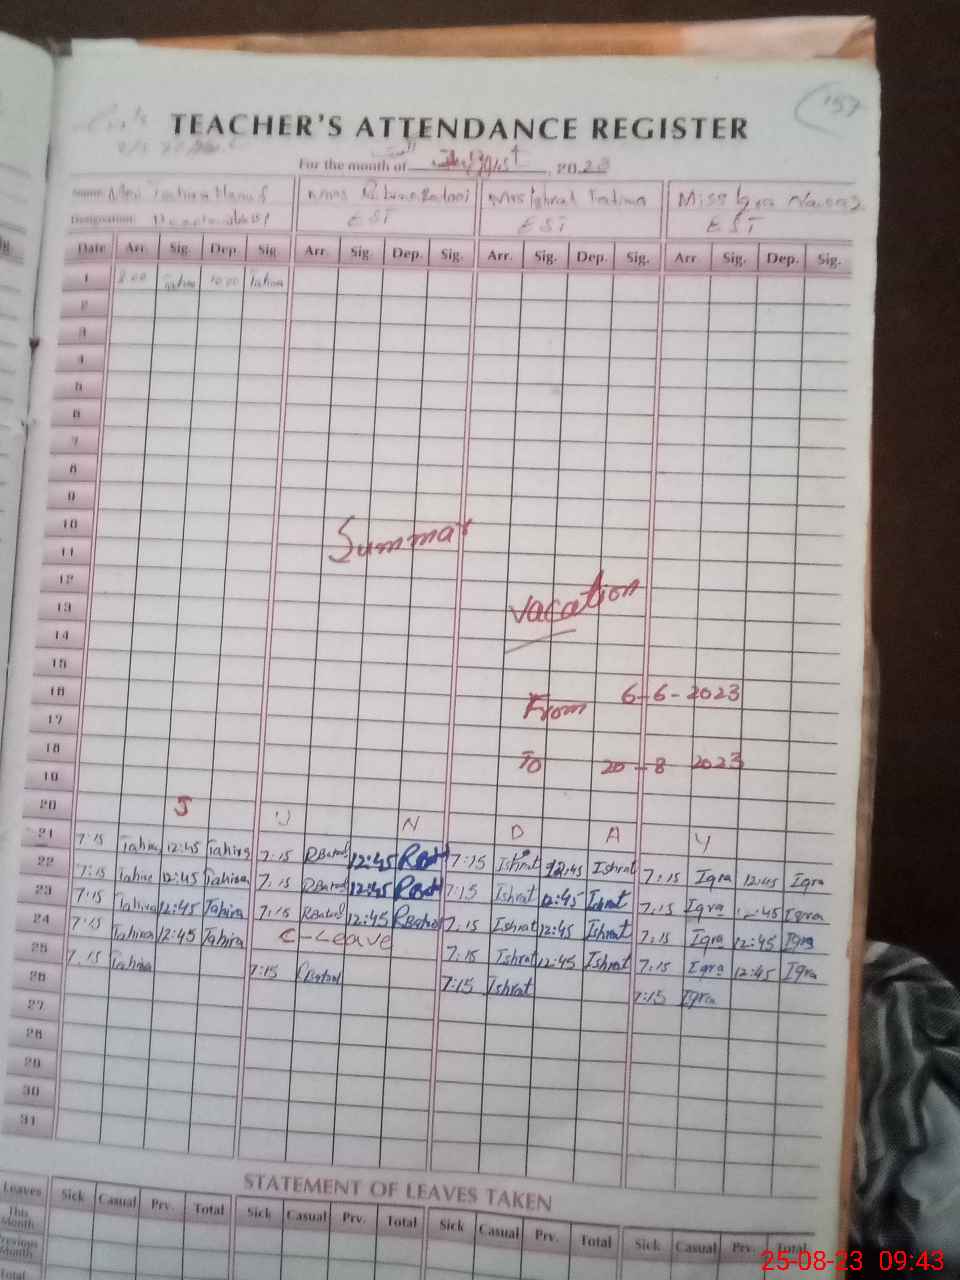 157
TEACHER'S ATTENDANCE REGISTER
For the month of August, 2023
Name Tahira Hanif Mrs Mrs Ishrat Fatima Miss Iqra
Designation EST EST EST
Date Arr. Sig. Dep. Sig. Arr. Sig. Dep. Sig. Arr. Sig. Dep. Sig. Arr. Sig. Dep. Sig.
1 8:00 Tahira 10:00 Tahira
2
3
4
5
6
7
8
9
10
Summar
11
12
vacation
13
14
15
16
From 6-6-2023
17
18
To 20-8 2023
19
20
S U N D A Y
21 7:15 Tahira 12:45 Tahira 7:15 RBatool 12:45 7:15 Ishrat 12:45 Ishrat 7:15 Iqra 12:45 Iqra
22 7:15 Tahira 12:45 Tahira 7:15 RBatool 12:45 7:15 Ishrat 12:45 Ishrat 7:15 Iqra 12:45 Iqra
23 7:15 Tahira 12:45 Tahira 7:15 RBatool 12:45 RBatool 7:15 Ishrat 12:45 Ishrat 7:15 Iqra 12:45 Iqra
24 7:15 Tahira 12:45 Tahira C-Leave 7:15 Ishrat 12:45 Ishrat 7:15 Iqra 12:45 Iqra
25 7:15 Tahira 7:15 RBatool 7:15 Ishrat 7:15 Iqra
26
27
28
29
30
31
STATEMENT OF LEAVES TAKEN
Leaves Sick Casual Prv. Total Sick Casual Prv. Total Sick Casual Prv. Total Sick Casual Prv. Total
This Month
Previous Month
Total
25-08-23 09:43